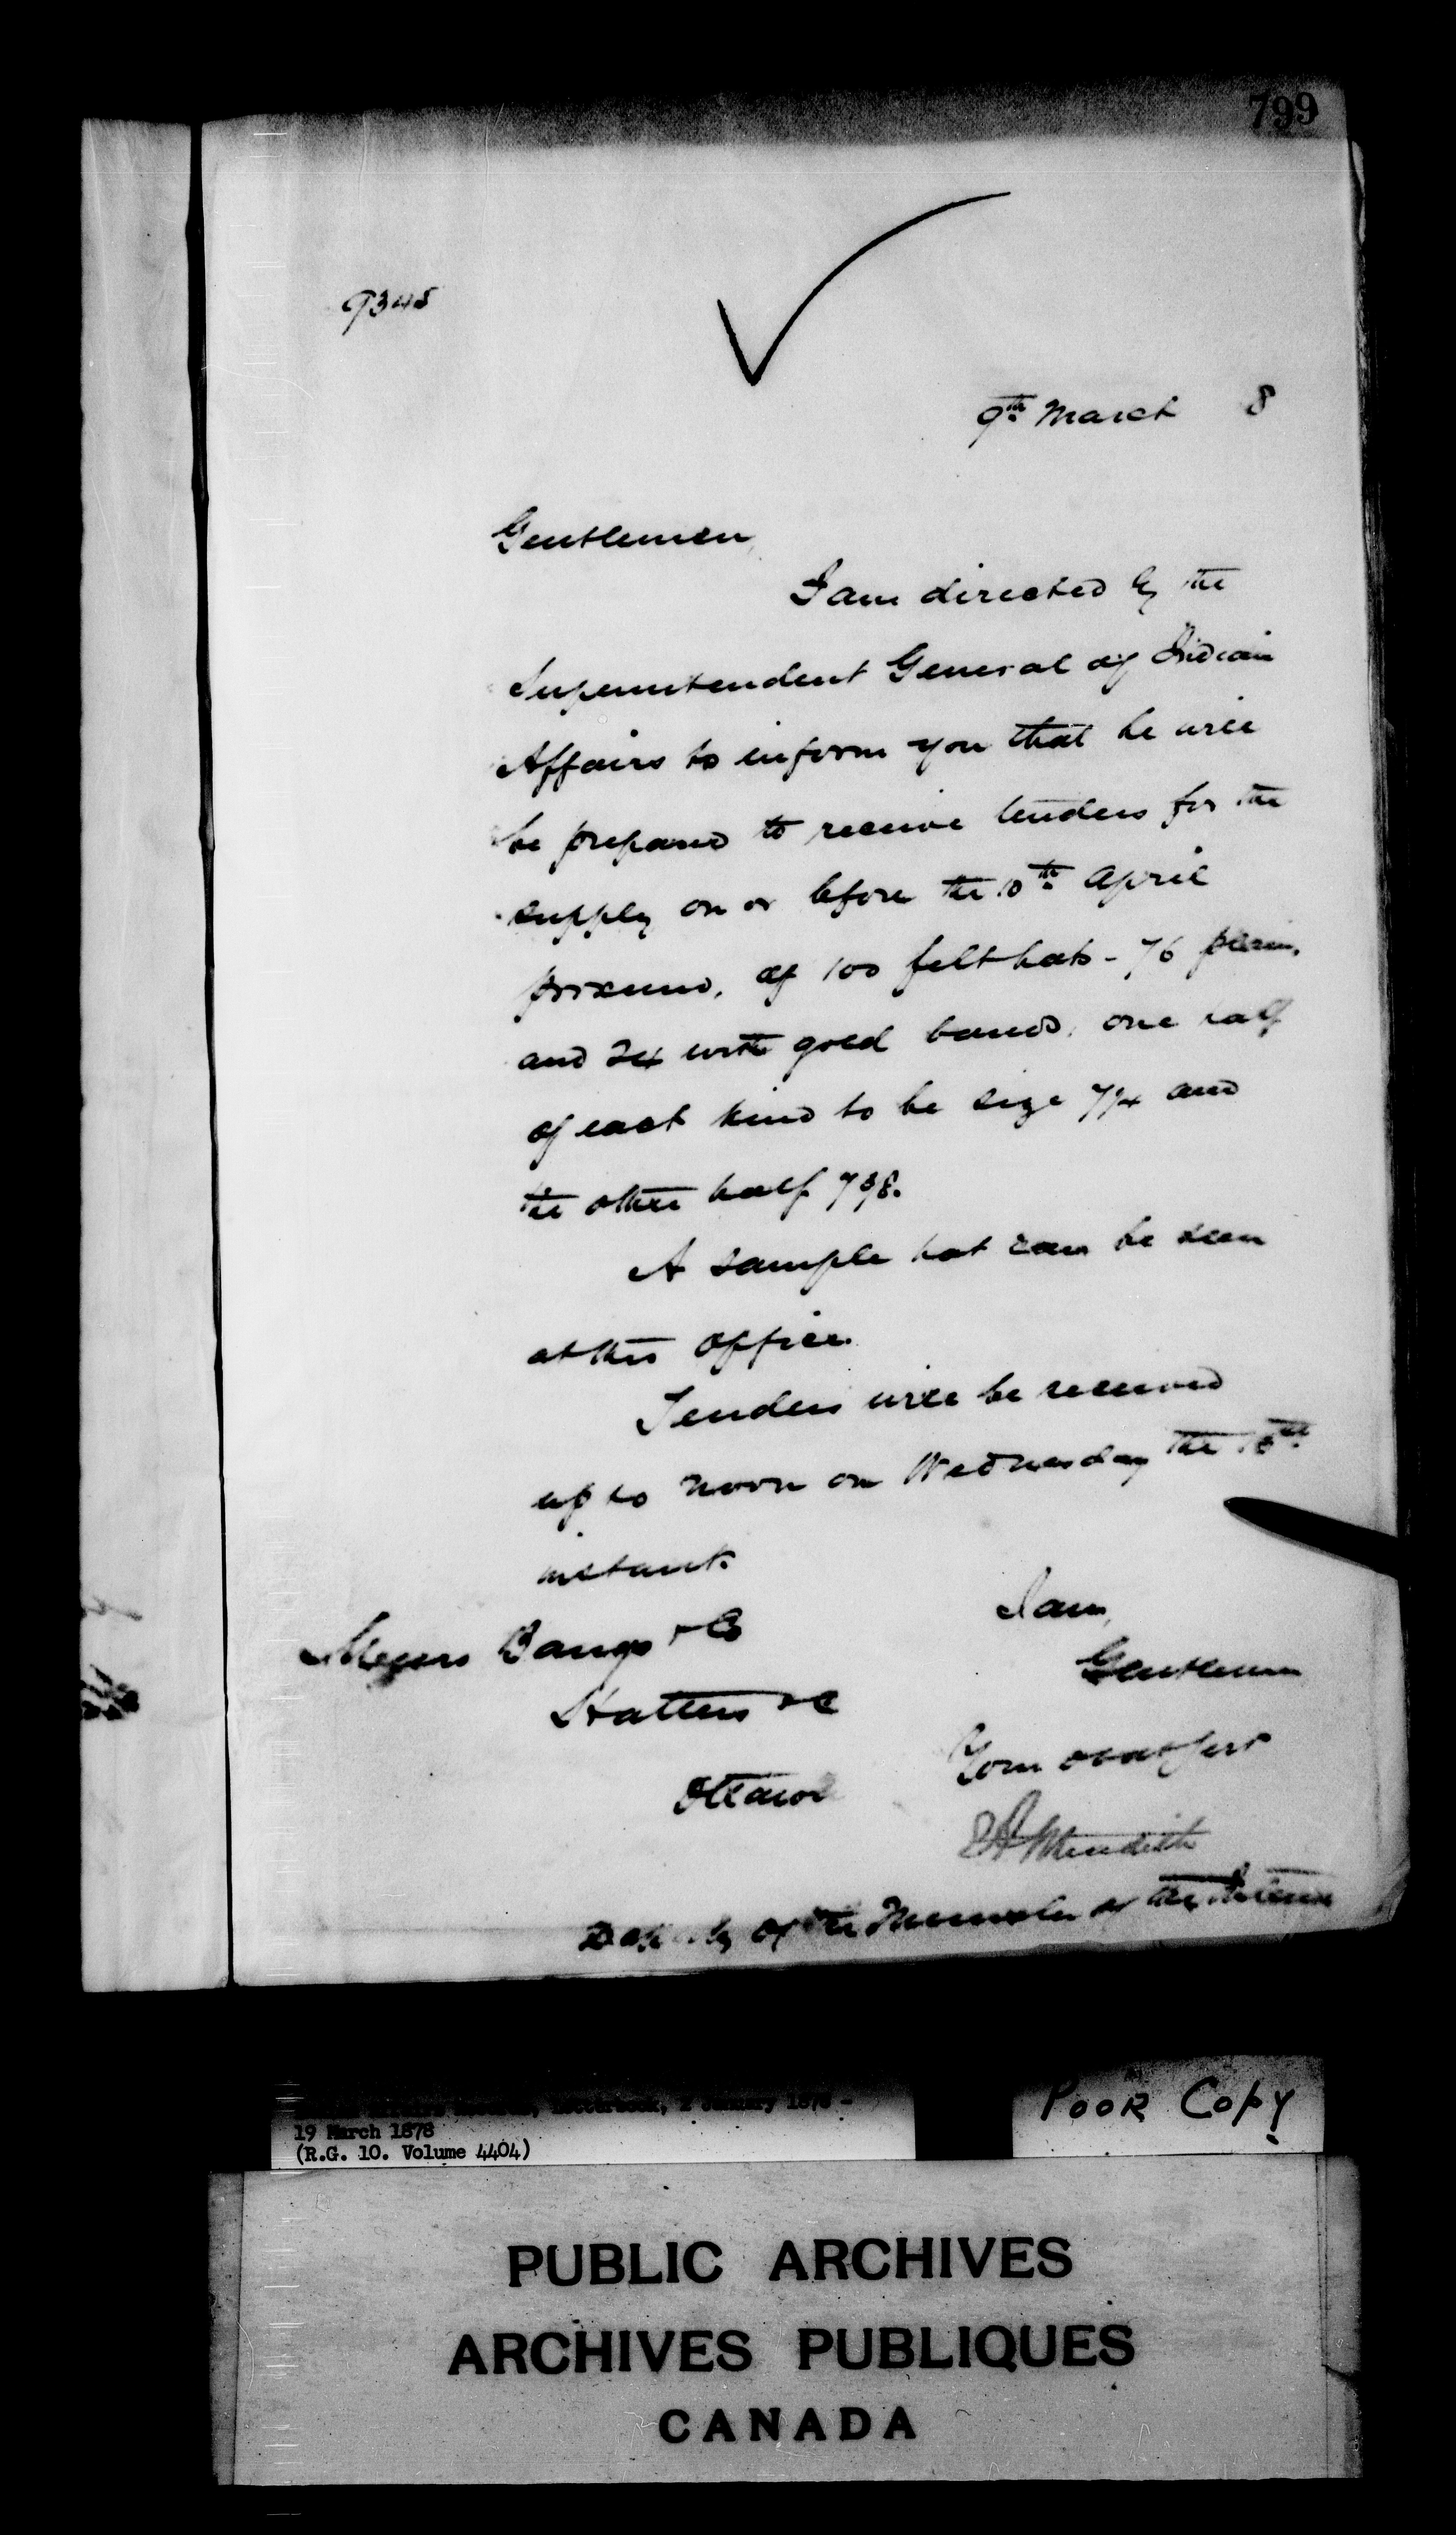 799
9345
9th March 8
Gentlemen,
I am directed by the
Superintendent General of Indian
Affairs to inform you that he will
be prepared to receive tenders for the
supply on or before the 10th April
proximo, of 100 felt hats - 76 plain,
and 24 with gold bands, one half
of each kind to be size 7 1/4 and
the other half 7 3/8.
A sample hat can be seen
at this office.
Tenders will be received
up to noon on Wednesday the
instant.
I am,
Messrs Bangs & Co
Gentlemen
Hatters &c
Your obdt servt
Ottawa
E A Meredith
Deputy of the Minister of the Interior
Letterbook, 2 January 1878 -
19 March 1878
(R.G. 10. Volume 4404)
POOR COPY
PUBLIC ARCHIVES
ARCHIVES PUBLIQUES
CANADA